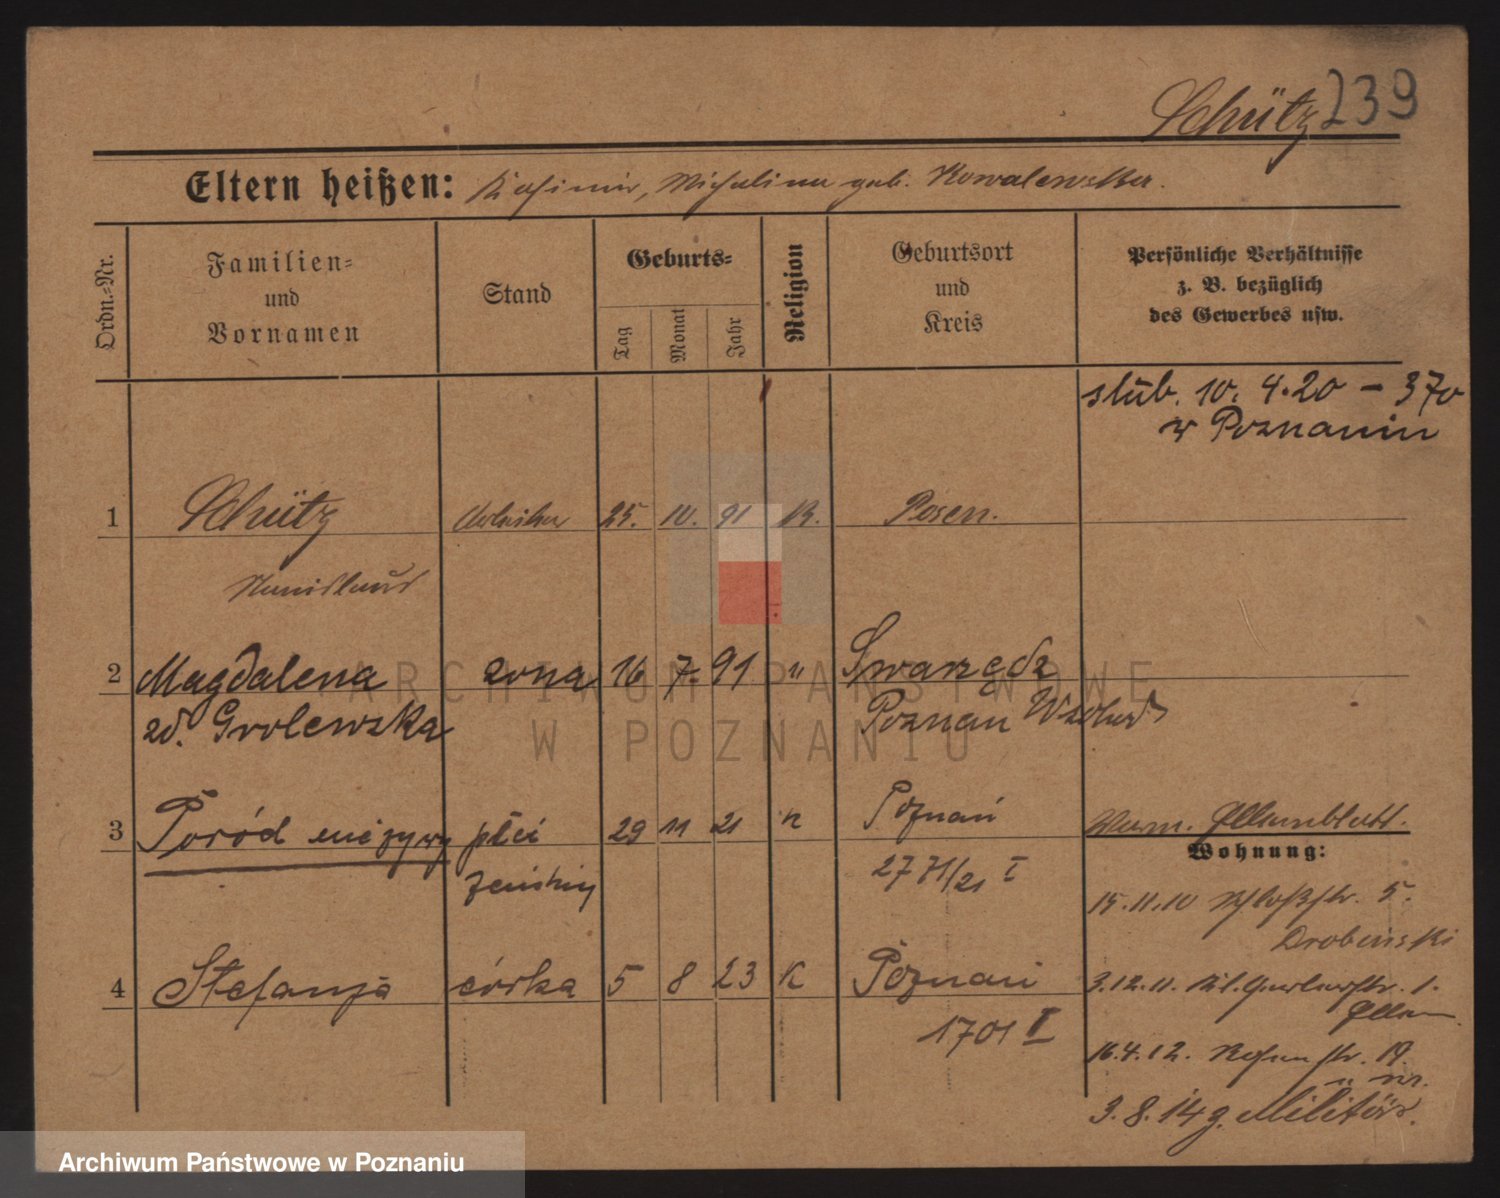 Schütz 239
Eltern heißen: Kasimir, Michalina geb. Kowalewska.
Ordn.=Nr.
Familien=
und
Vornamen
Stand
Geburts=
Tag
Monat
Jahr
Religion
Geburtsort
und
Kreis
Persönliche Verhältnisse
z. B. bezüglich
des Gewerbes usw.
slub. 10. 4.20 – 370
w Poznaniu
1 Schütz Arbeiter 25. 10. 91 K. Posen.
Stanislaus
2 Magdalena żona 16 7. 91 " Swarzędz
zd. Grolewska Poznan Wschod
3 Poród nieżywy płci 29 11 21 K Poznań
żeńskiej 2771/21 I
4 Stefanja córka 5 8 23 K Poznań
1701 I
Verm. Elternblatt.
Wohnung:
15.11.10 Schloßstr. 5.
Drobinski
3.12.11. Kl. Gerberstr. 1.
Eltern
16.4.12. 19.
" nr.
3.8.14 z. Militär.
ARCHIWUM PAŃSTWOWE
W POZNANIU
Archiwum Państwowe w Poznaniu